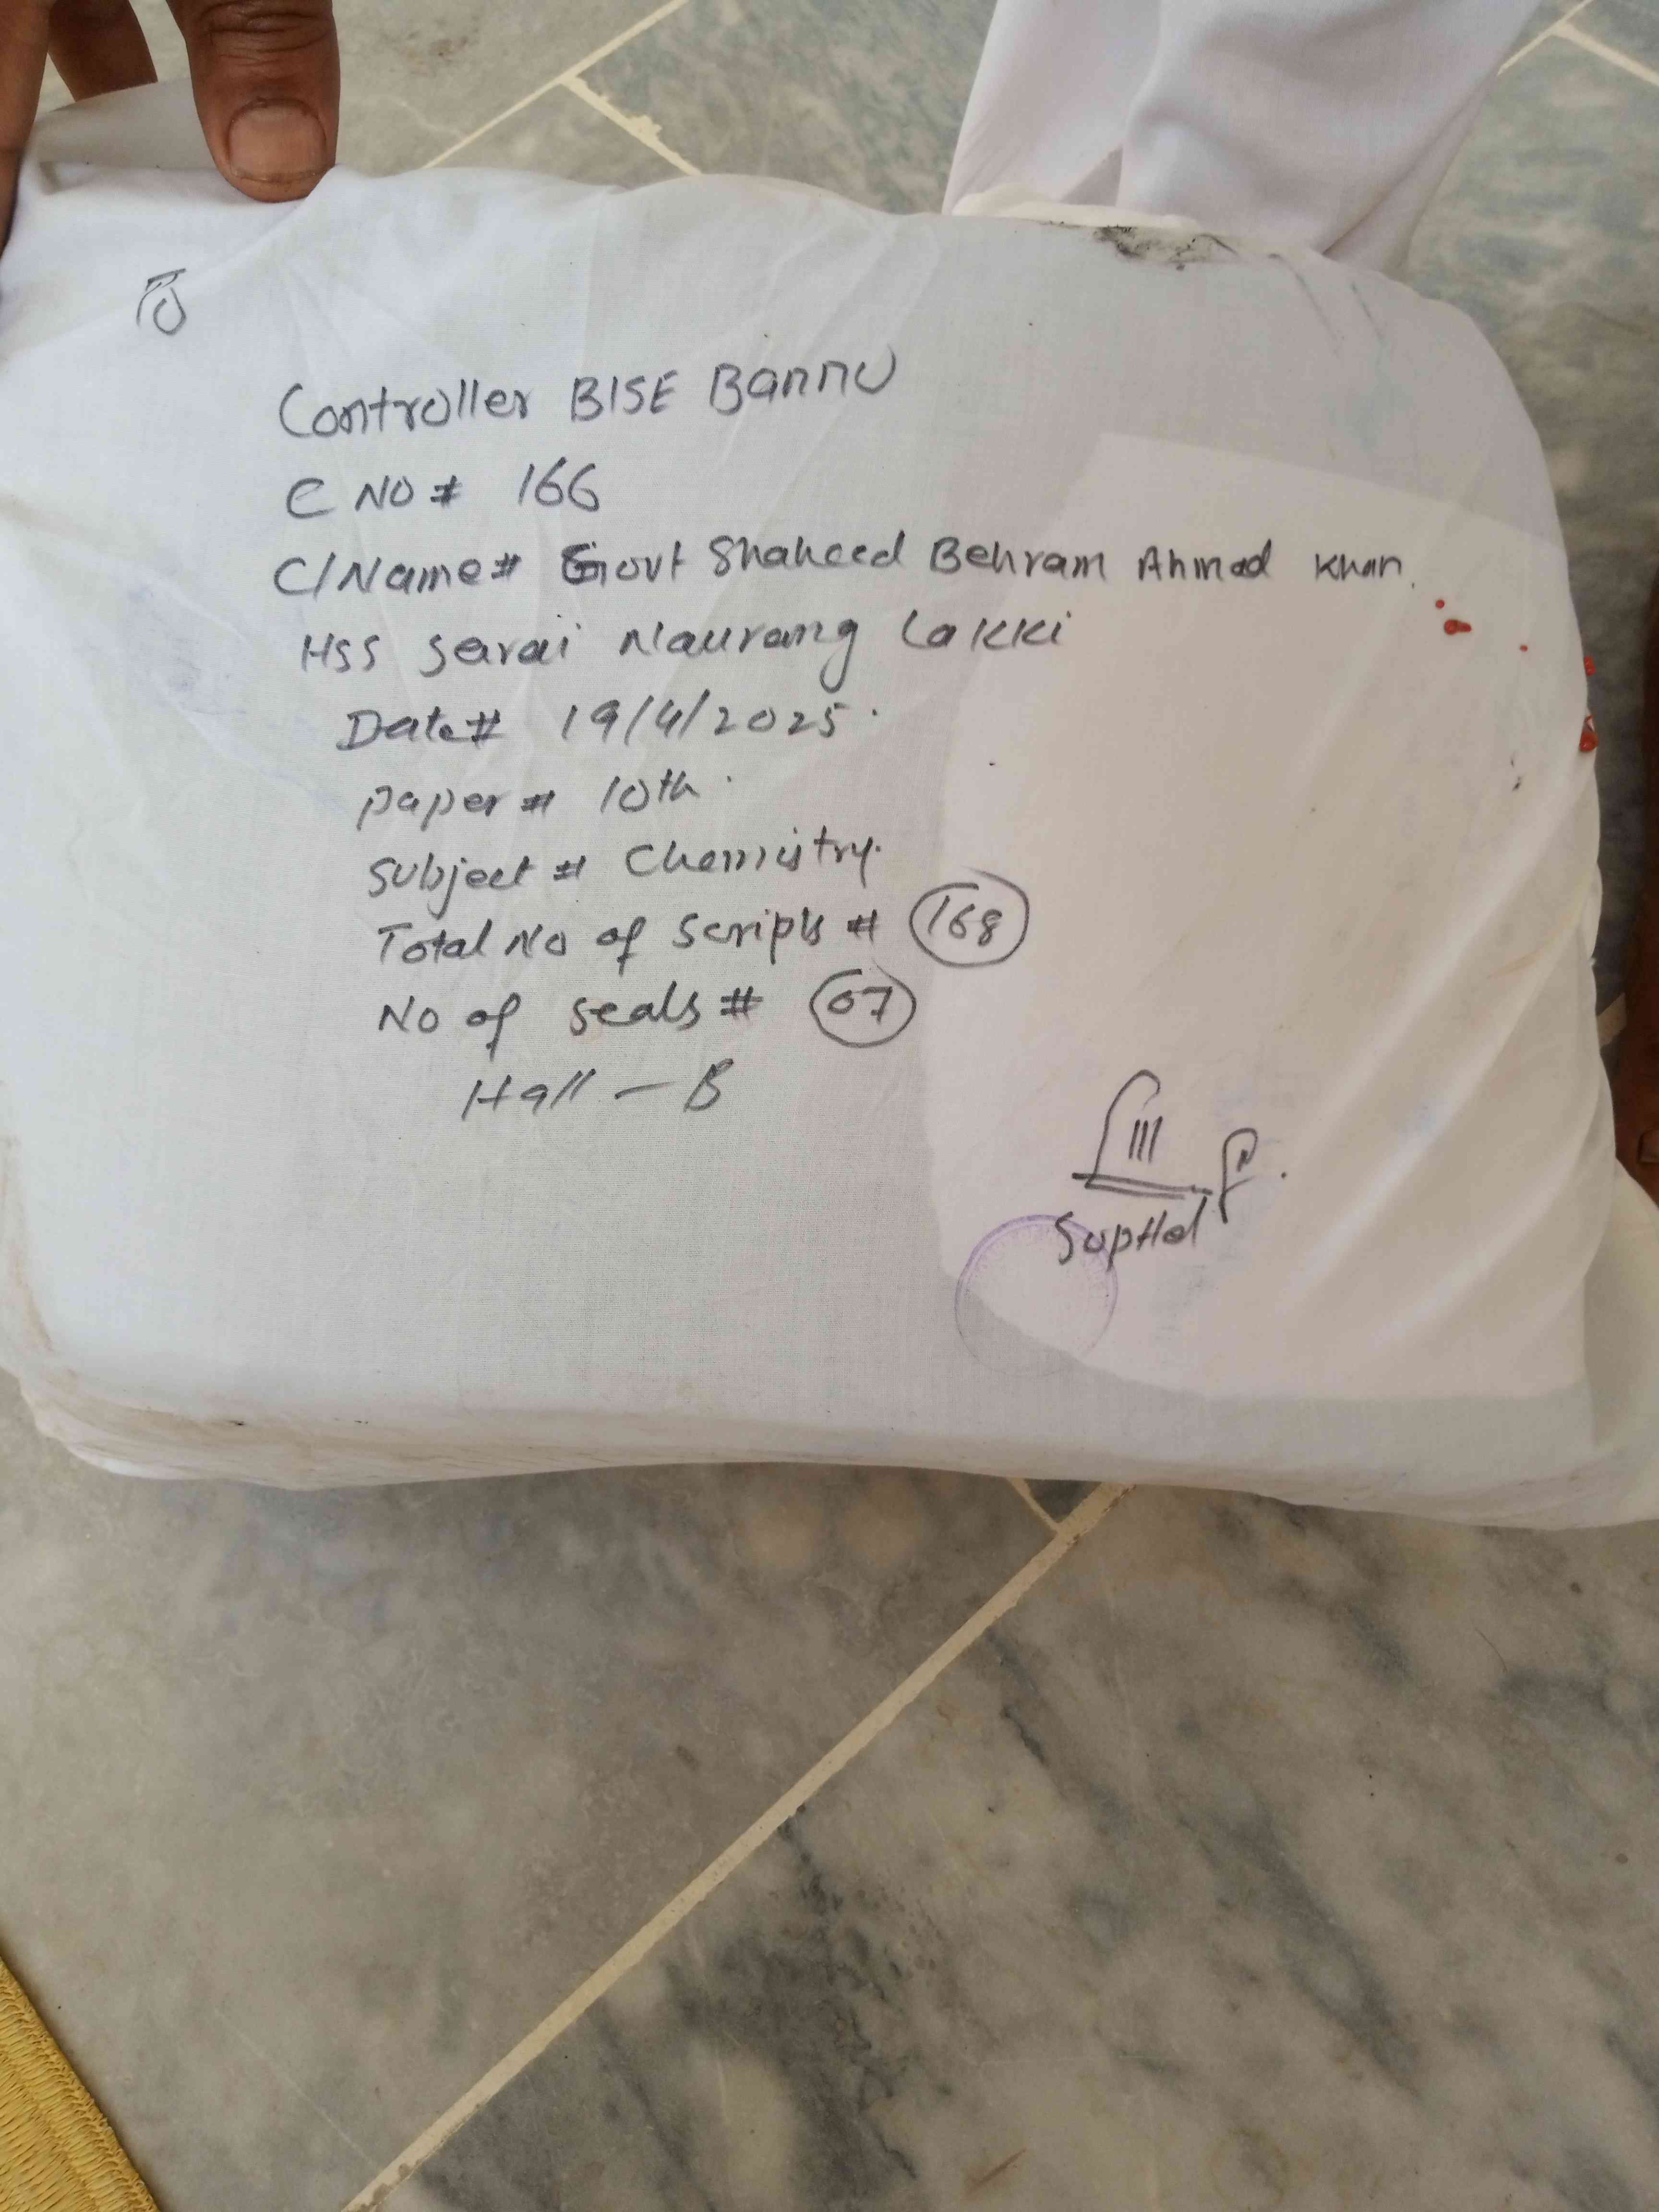 To
Controller BISE Bannu
C NO # 166
C/Name # Govt Shaheed Behram Ahmad Khan.
HSS Sarai Naurang Lakki
Date # 19/4/2025.
Paper # 10th.
Subject # Chemistry.
Total No of Scripts # 168
No of seals # 07
Hall - B
Supttd